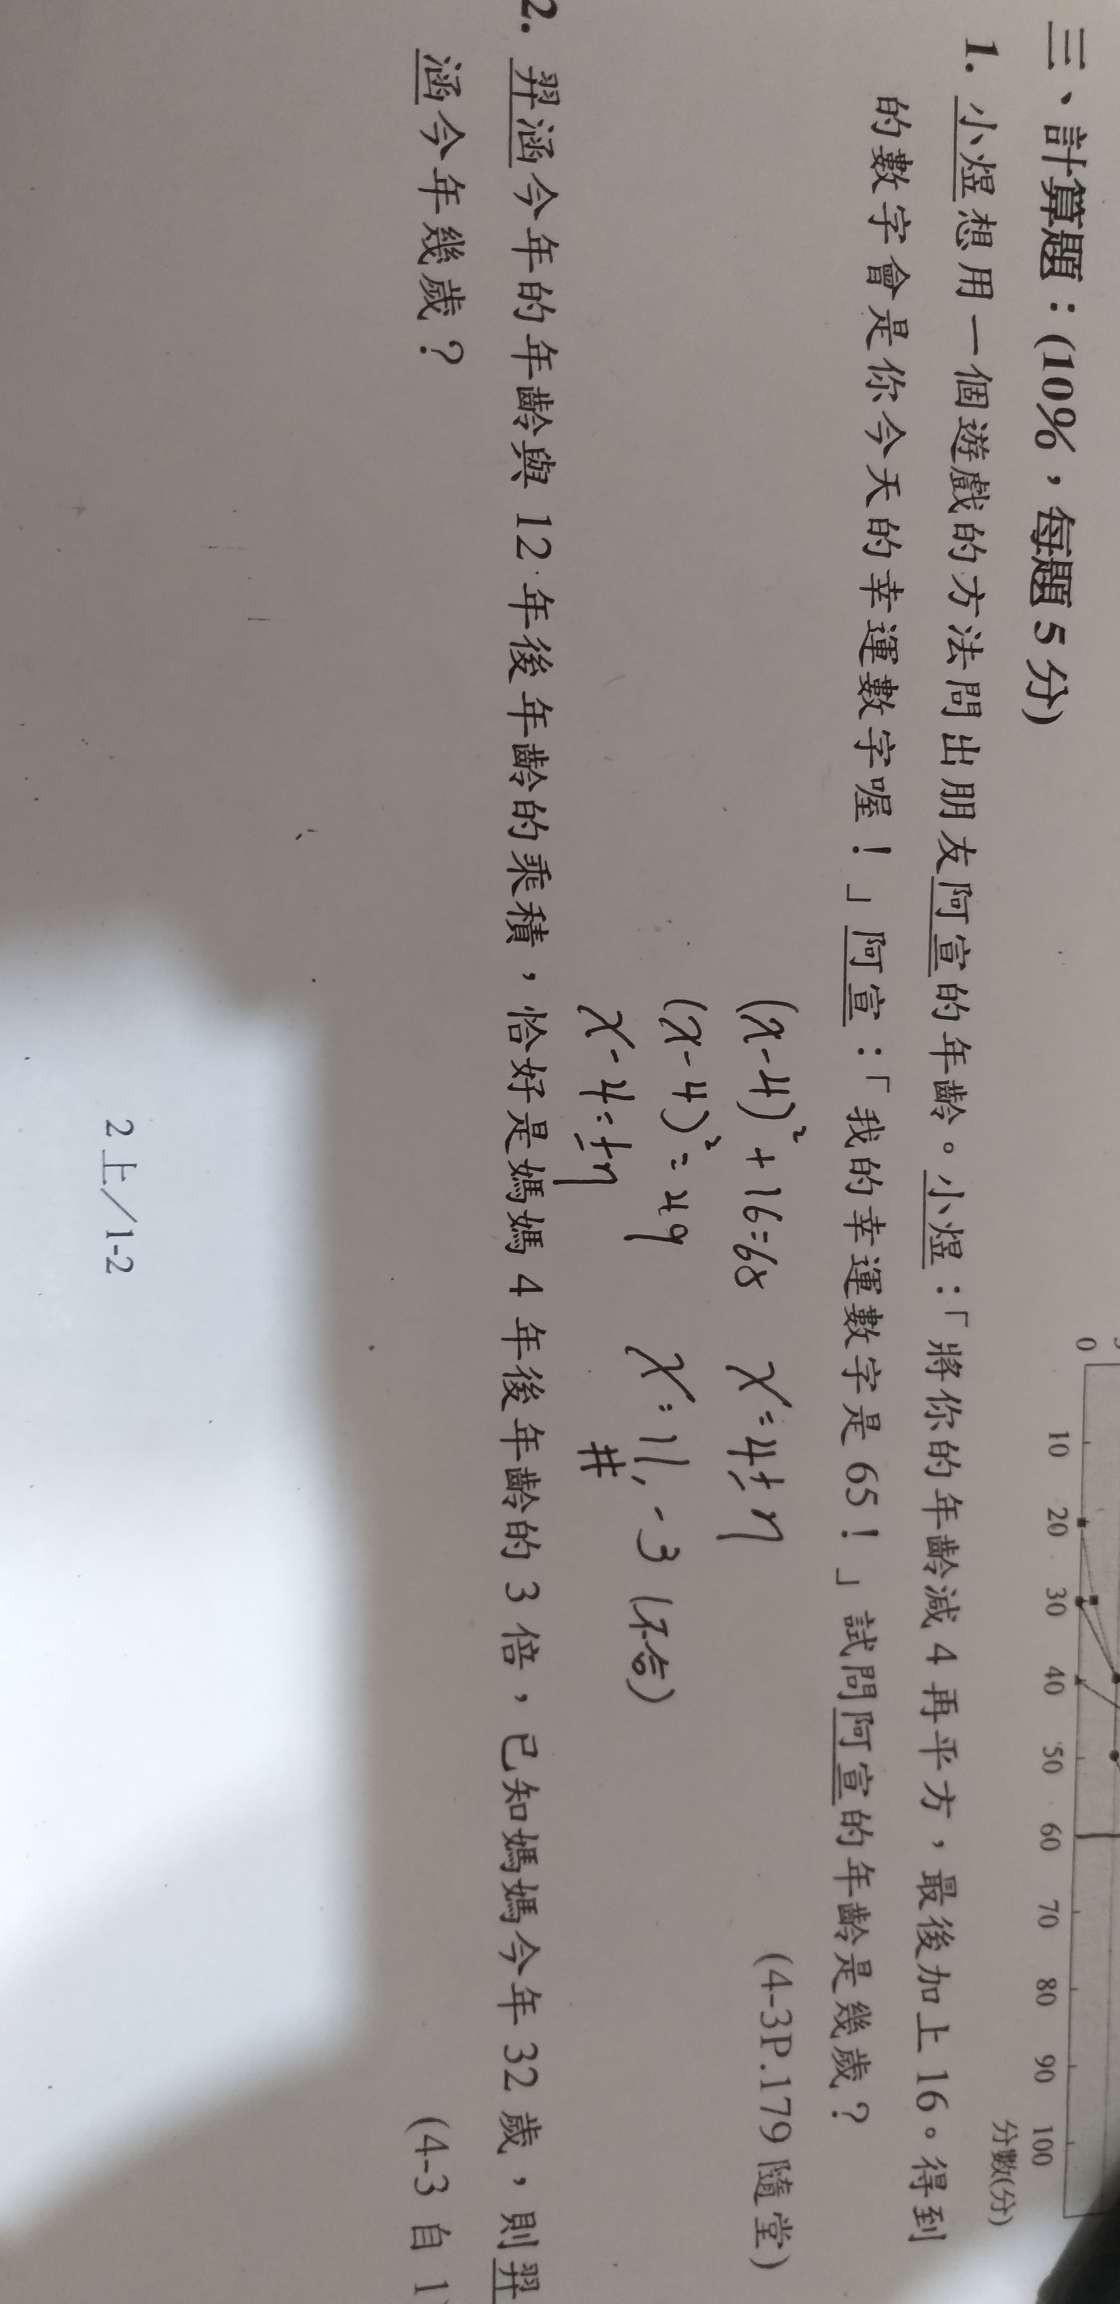 0 10 20 30 40 50 60 70 80 90 100
分數(分)
三、計算題：(10%，每題5分)
1. 小煜想用一個遊戲的方法問出朋友阿宣的年齡。小煜：「將你的年齡減4再平方，最後加上16。得到
的數字會是你今天的幸運數字喔！」阿宣：「我的幸運數字是65！」試問阿宣的年齡是幾歲？
(4-3P.179隨堂)
(x-4)²+16=65 x=4±7
(x-4)²=49 x=11,-3(不合)
x-4=±7 #
2. 羿涵今年的年齡與12年後年齡的乘積，恰好是媽媽4年後年齡的3倍，已知媽媽今年32歲，則羿
涵今年幾歲？
(4-3自1
2上/1-2